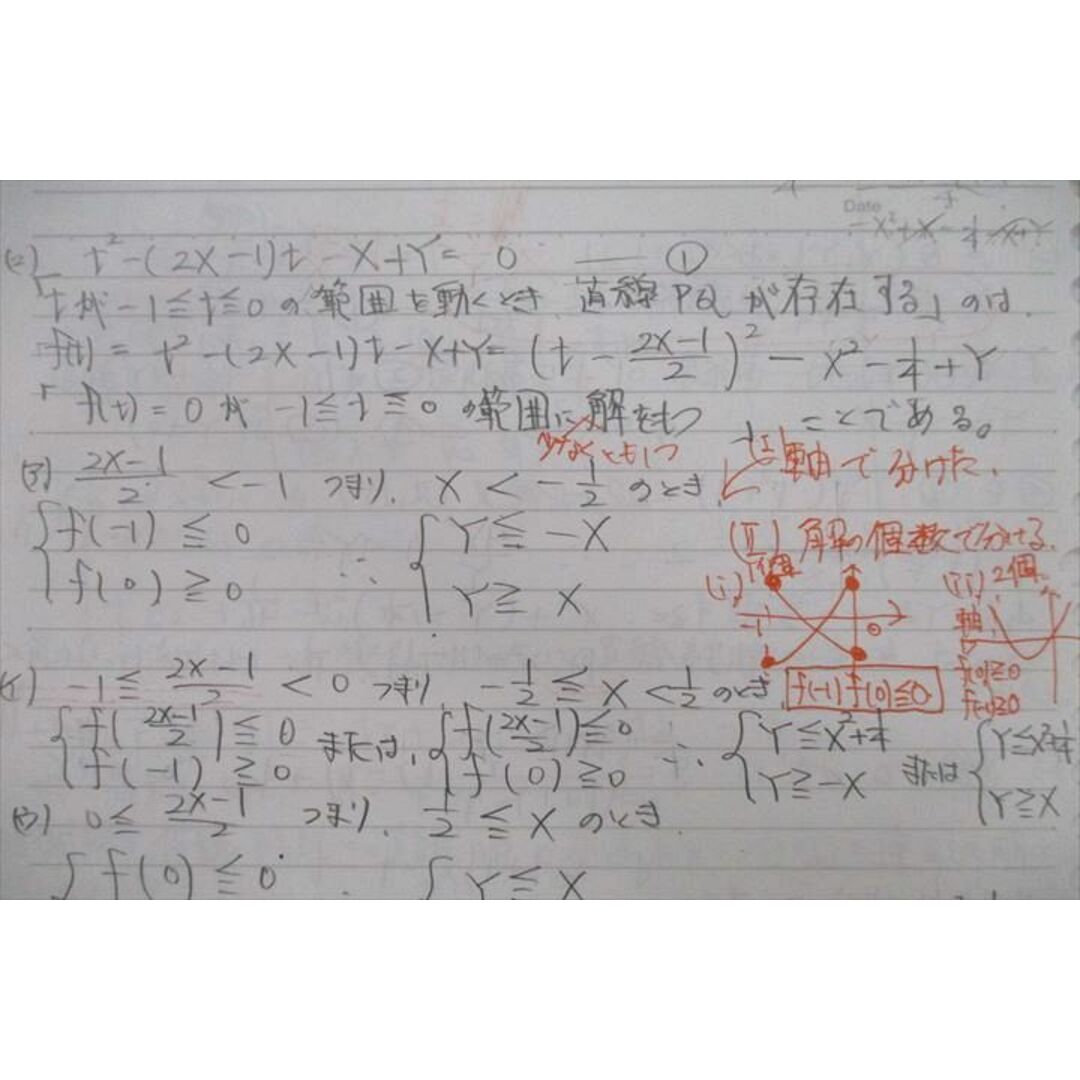 Date
(2) t²-(2X-1)t-X+Y=0 ―― ①
「tが-1≦t≦0の範囲を動くとき 直線PQが存在する」のは、
f(t)=t²-(2X-1)t-X+Y=(t-\frac{2X-1}{2})²-X²-\frac{1}{4}+Y
「f(t)=0が-1≦t≦0の範囲に解をもつ ことである。
少なくとも1つ
(I) 軸で分けた.
(ア) \frac{2X-1}{2}<-1 つまり、X<-\frac{1}{2}のとき、
{f(-1)≦0 ∴ {Y≦-X
f(0)≧0 Y≧X
(II) 解の個数で分ける.
(i) 1個
-1 0
f(-1)f(0)≦0
(ii) 2個
軸
f(0)≧0
f(-1)≧0
(イ) -1≦\frac{2X-1}{2}<0 つまり -\frac{1}{2}≦X<\frac{1}{2}のとき
{f(\frac{2X-1}{2})≦0 または、{f(\frac{2X-1}{2})≦0 ∴ {Y≦X²+\frac{1}{4} または {Y≦X²+\frac{1}{4}
f(-1)≧0 f(0)≧0 Y≧-X Y≧X
(ウ) 0≦\frac{2X-1}{2} つまり、\frac{1}{2}≦Xのとき、
{f(0)≦0 {Y≦X